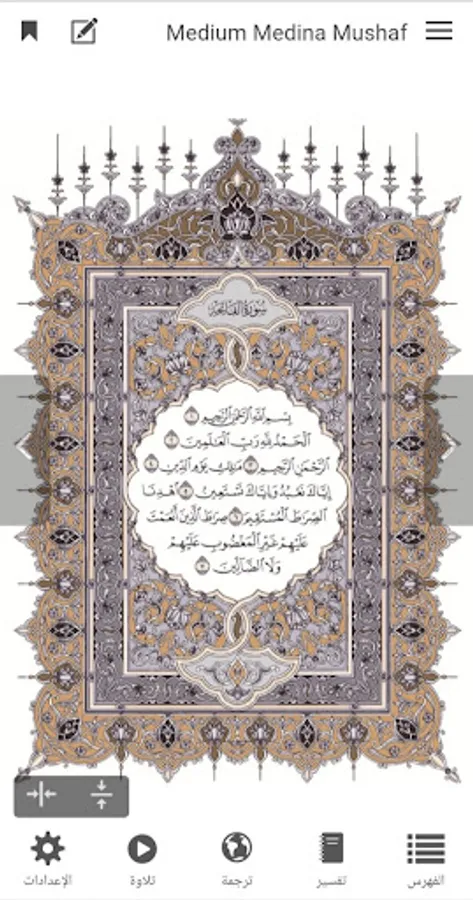 Medium Medina Mushaf
سُورَةُ الفَاتِحَةِ
بِسْمِ اللَّهِ الرَّحْمَٰنِ الرَّحِيمِ ١
الْحَمْدُ لِلَّهِ رَبِّ الْعَالَمِينَ ٢
الرَّحْمَٰنِ الرَّحِيمِ ٣ مَالِكِ يَوْمِ الدِّينِ ٤
إِيَّاكَ نَعْبُدُ وَإِيَّاكَ نَسْتَعِينُ ٥ اهْدِنَا
الصِّرَاطَ الْمُسْتَقِيمَ ٦ صِرَاطَ الَّذِينَ أَنْعَمْتَ
عَلَيْهِمْ غَيْرِ الْمَغْضُوبِ عَلَيْهِمْ
وَلَا الضَّالِّينَ ٧
الفهرس
تفسير
ترجمة
تلاوة
الإعدادات